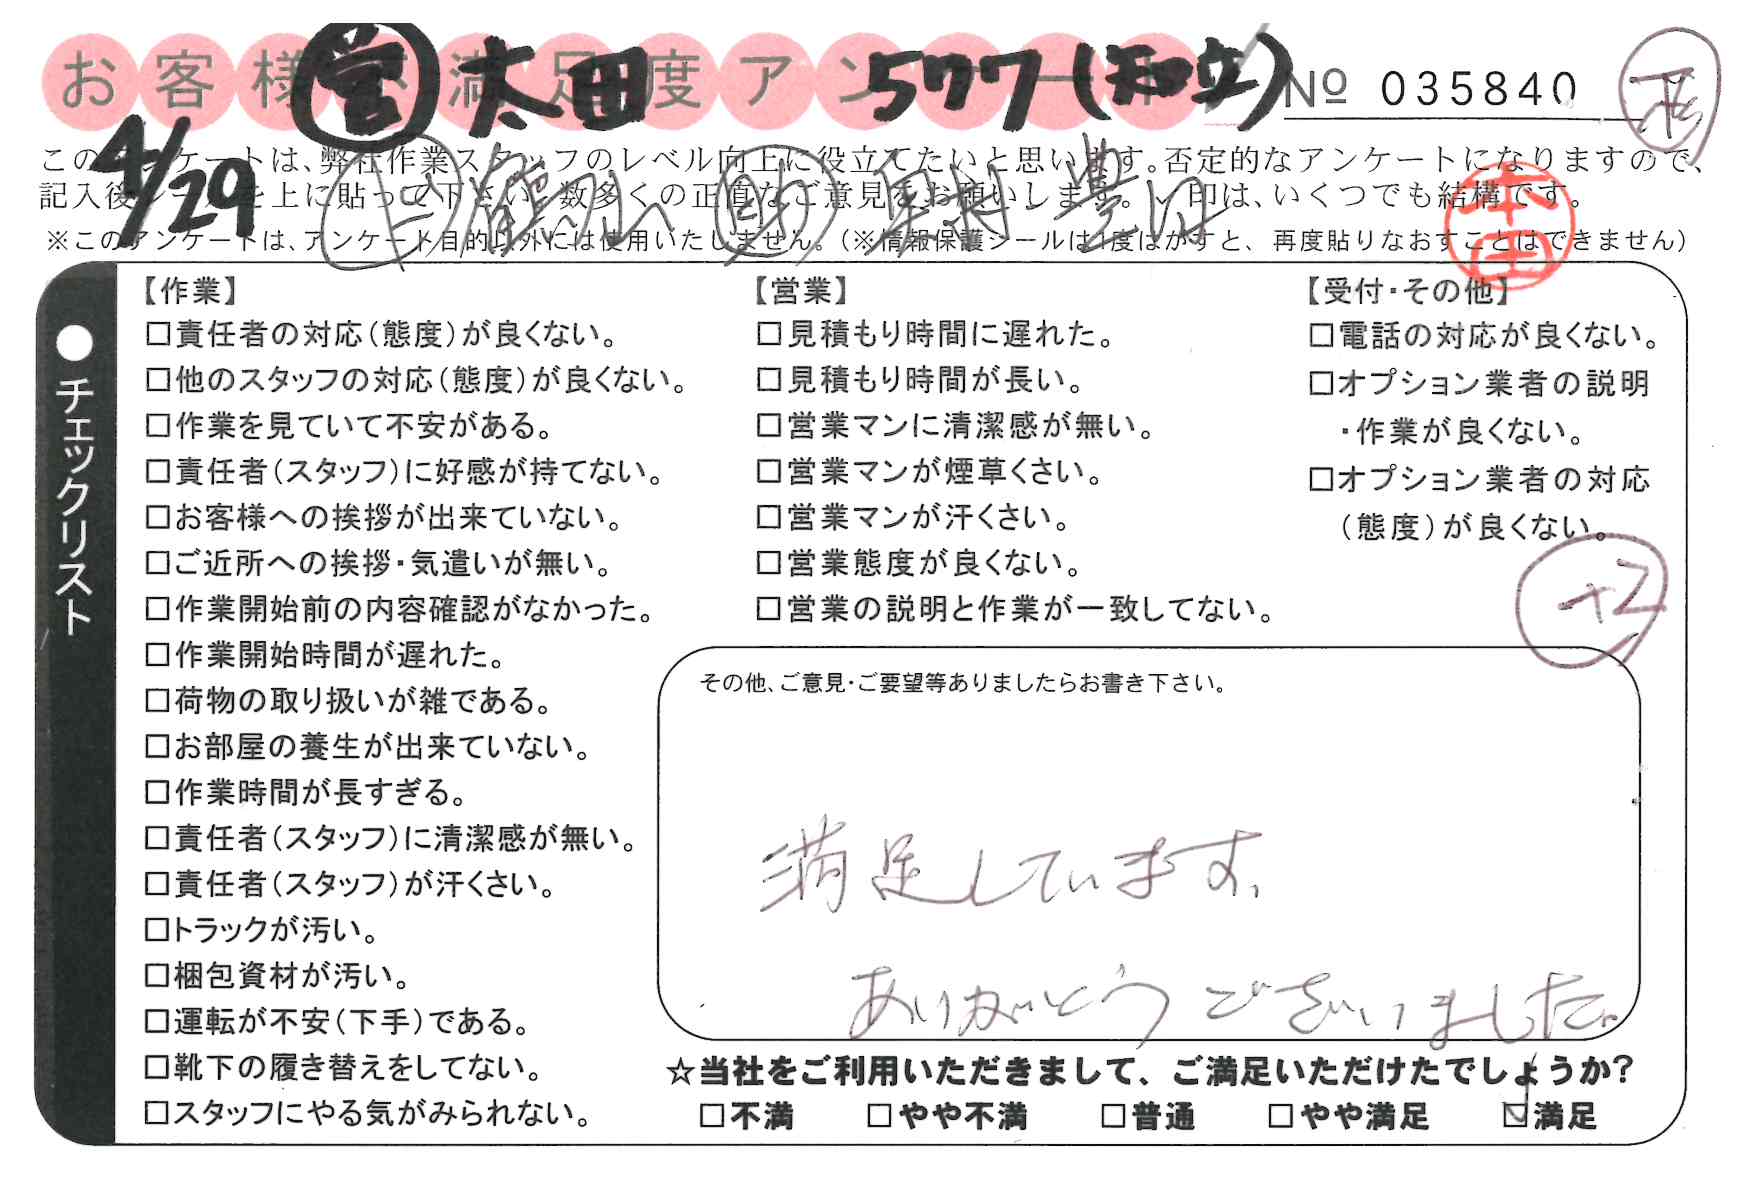 お客様不満足度アンケート
㊂営 太田 577(知立)
№ 035840
4/29
このアンケートは、弊社作業スタッフのレベル向上に役立てたいと思います。否定的なアンケートになりますので、
記入後シールを上に貼って下さい。数多くの正直なご意見をお願いします。✓印は、いくつでも結構です。
※このアンケートは、アンケート目的以外には使用いたしません。(※情報保護シールは1度はがすと、再度貼りなおすことはできません)
本田
●チェックリスト
【作業】
□責任者の対応(態度)が良くない。
□他のスタッフの対応(態度)が良くない。
□作業を見ていて不安がある。
□責任者(スタッフ)に好感が持てない。
□お客様への挨拶が出来ていない。
□ご近所への挨拶・気遣いが無い。
□作業開始前の内容確認がなかった。
□作業開始時間が遅れた。
□荷物の取り扱いが雑である。
□お部屋の養生が出来ていない。
□作業時間が長すぎる。
□責任者(スタッフ)に清潔感が無い。
□責任者(スタッフ)が汗くさい。
□トラックが汚い。
□梱包資材が汚い。
□運転が不安(下手)である。
□靴下の履き替えをしてない。
□スタッフにやる気がみられない。
【営業】
□見積もり時間に遅れた。
□見積もり時間が長い。
□営業マンに清潔感が無い。
□営業マンが煙草くさい。
□営業マンが汗くさい。
□営業態度が良くない。
□営業の説明と作業が一致してない。
【受付・その他】
□電話の対応が良くない。
□オプション業者の説明
・作業が良くない。
□オプション業者の対応
(態度)が良くない。
+2
その他、ご意見・ご要望等ありましたらお書き下さい。
満足しています。
ありがとうございました。
☆当社をご利用いただきまして、ご満足いただけたでしょうか?
□不満 □やや不満 □普通 □やや満足 ☑満足